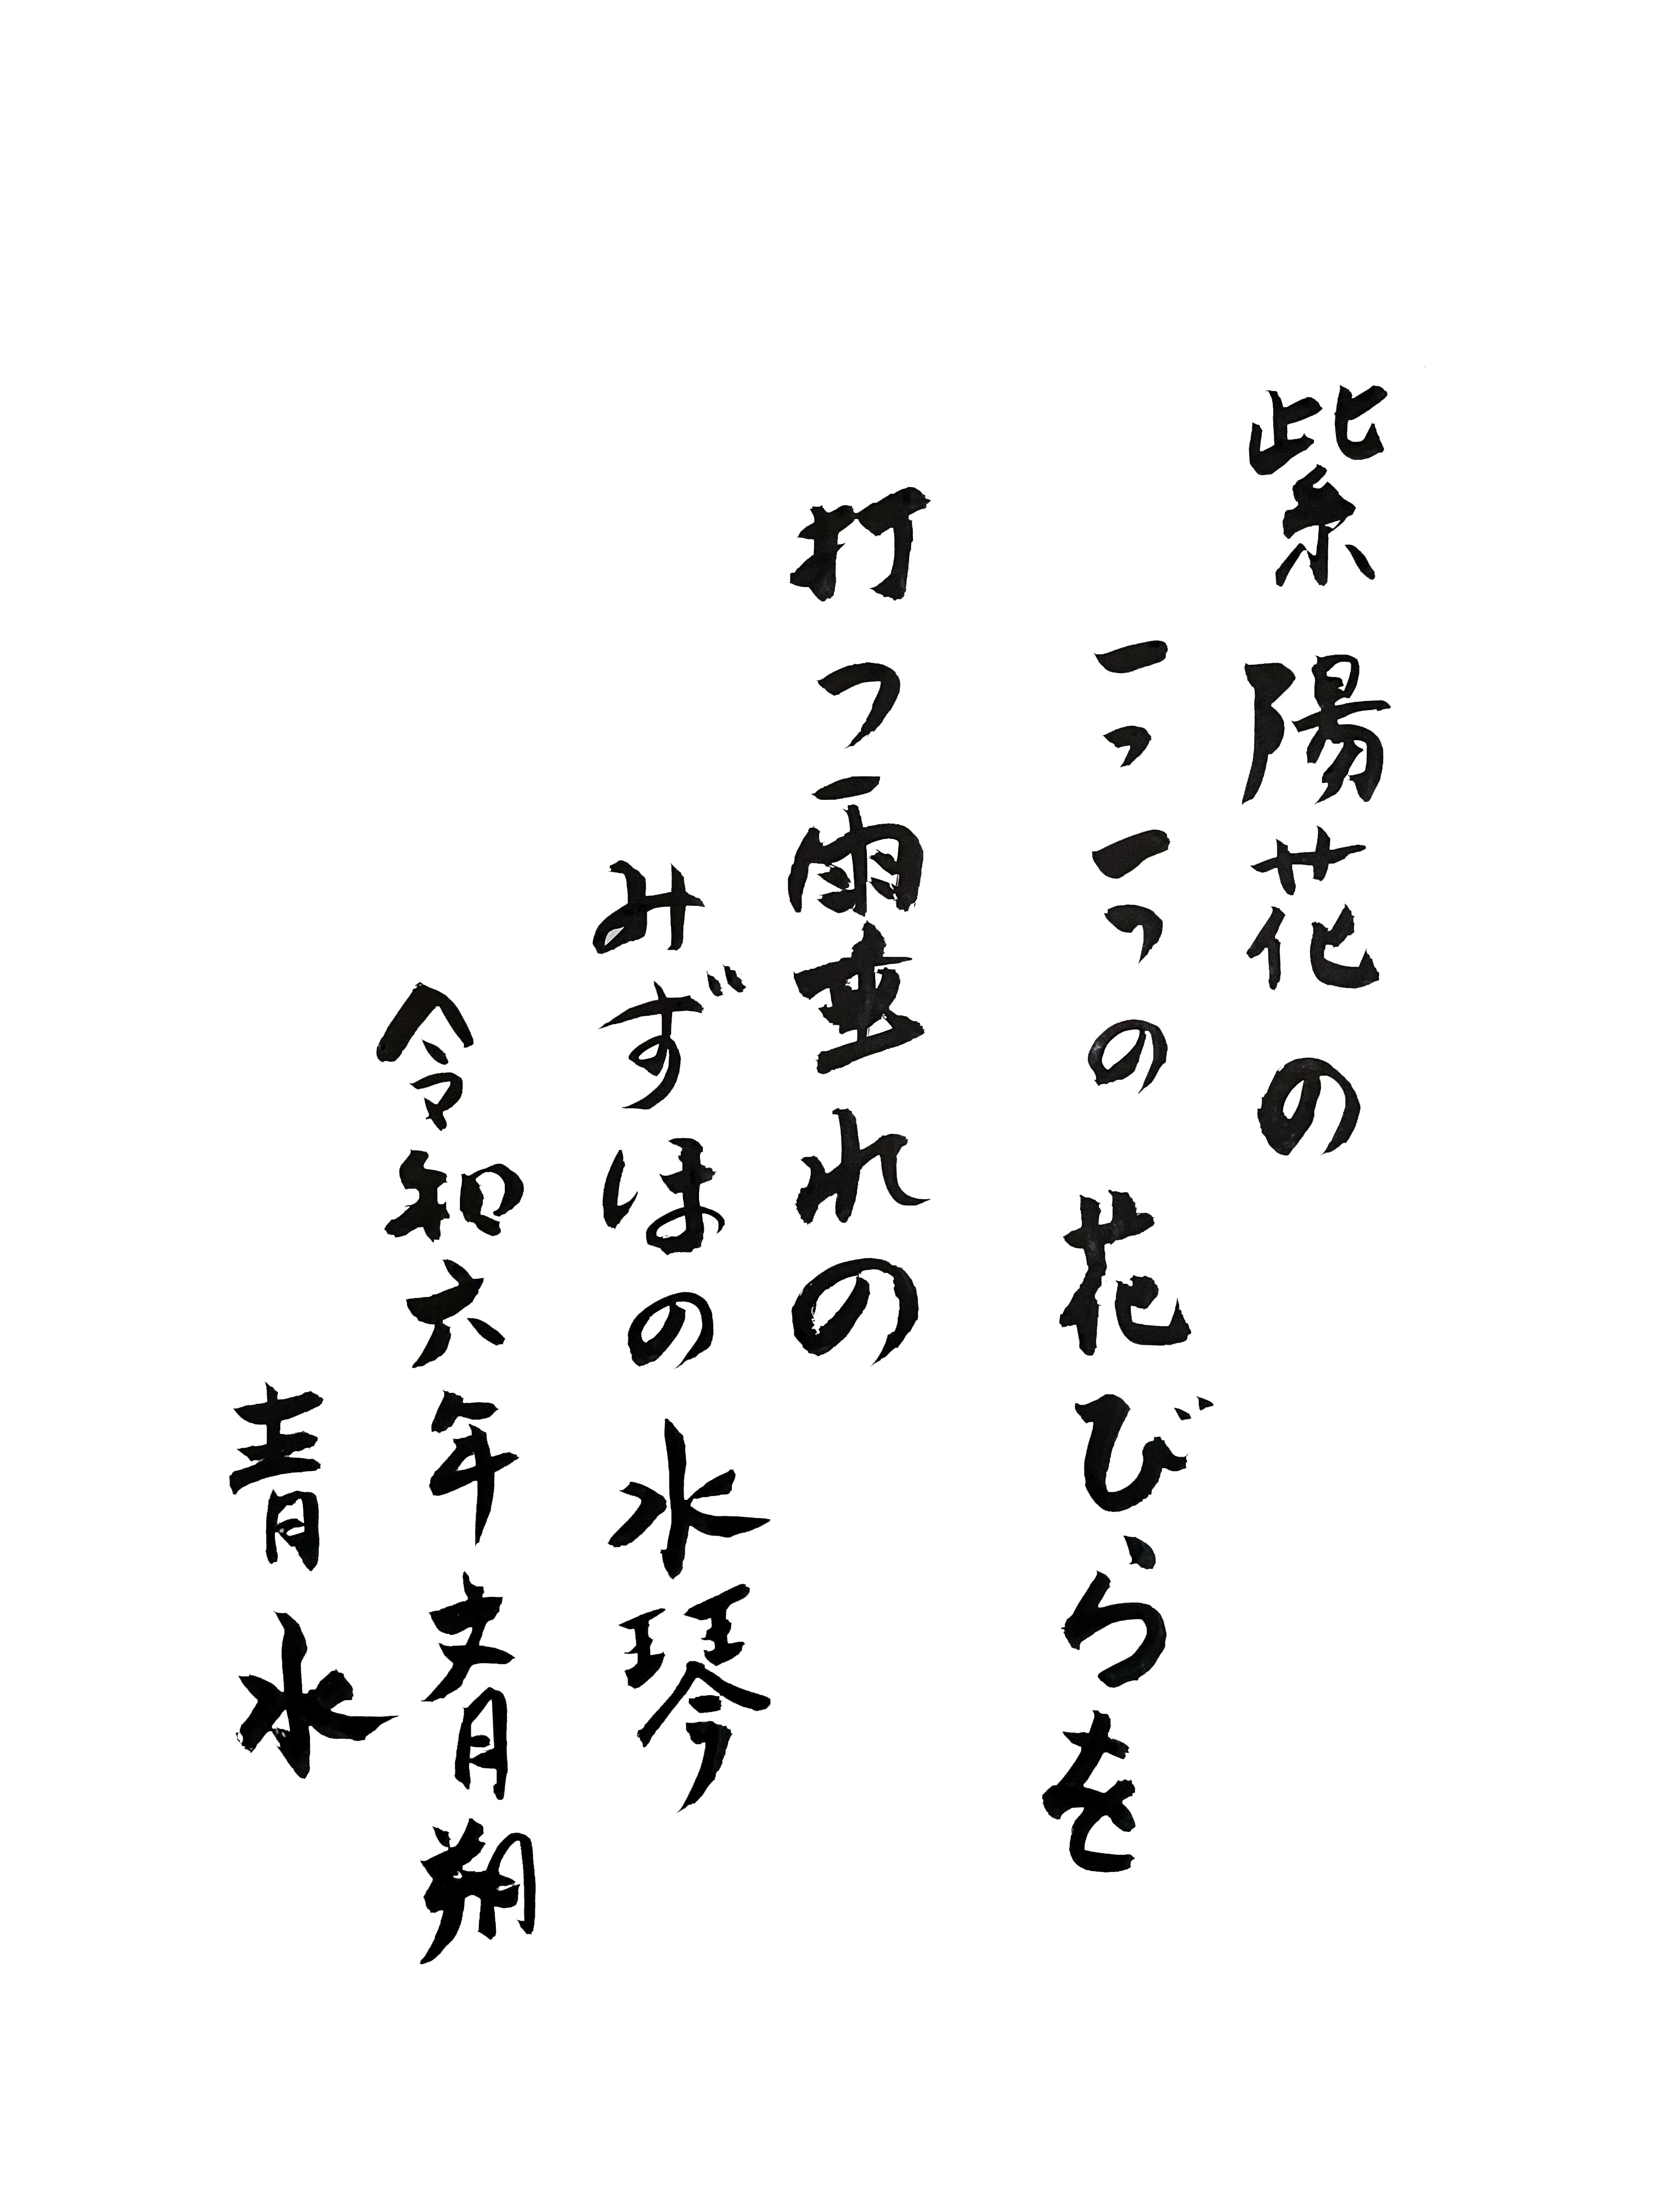 紫陽花の
一つ一つの花びらを
打つ雨垂れの
みずほの水琴
令和六年青朔
青水